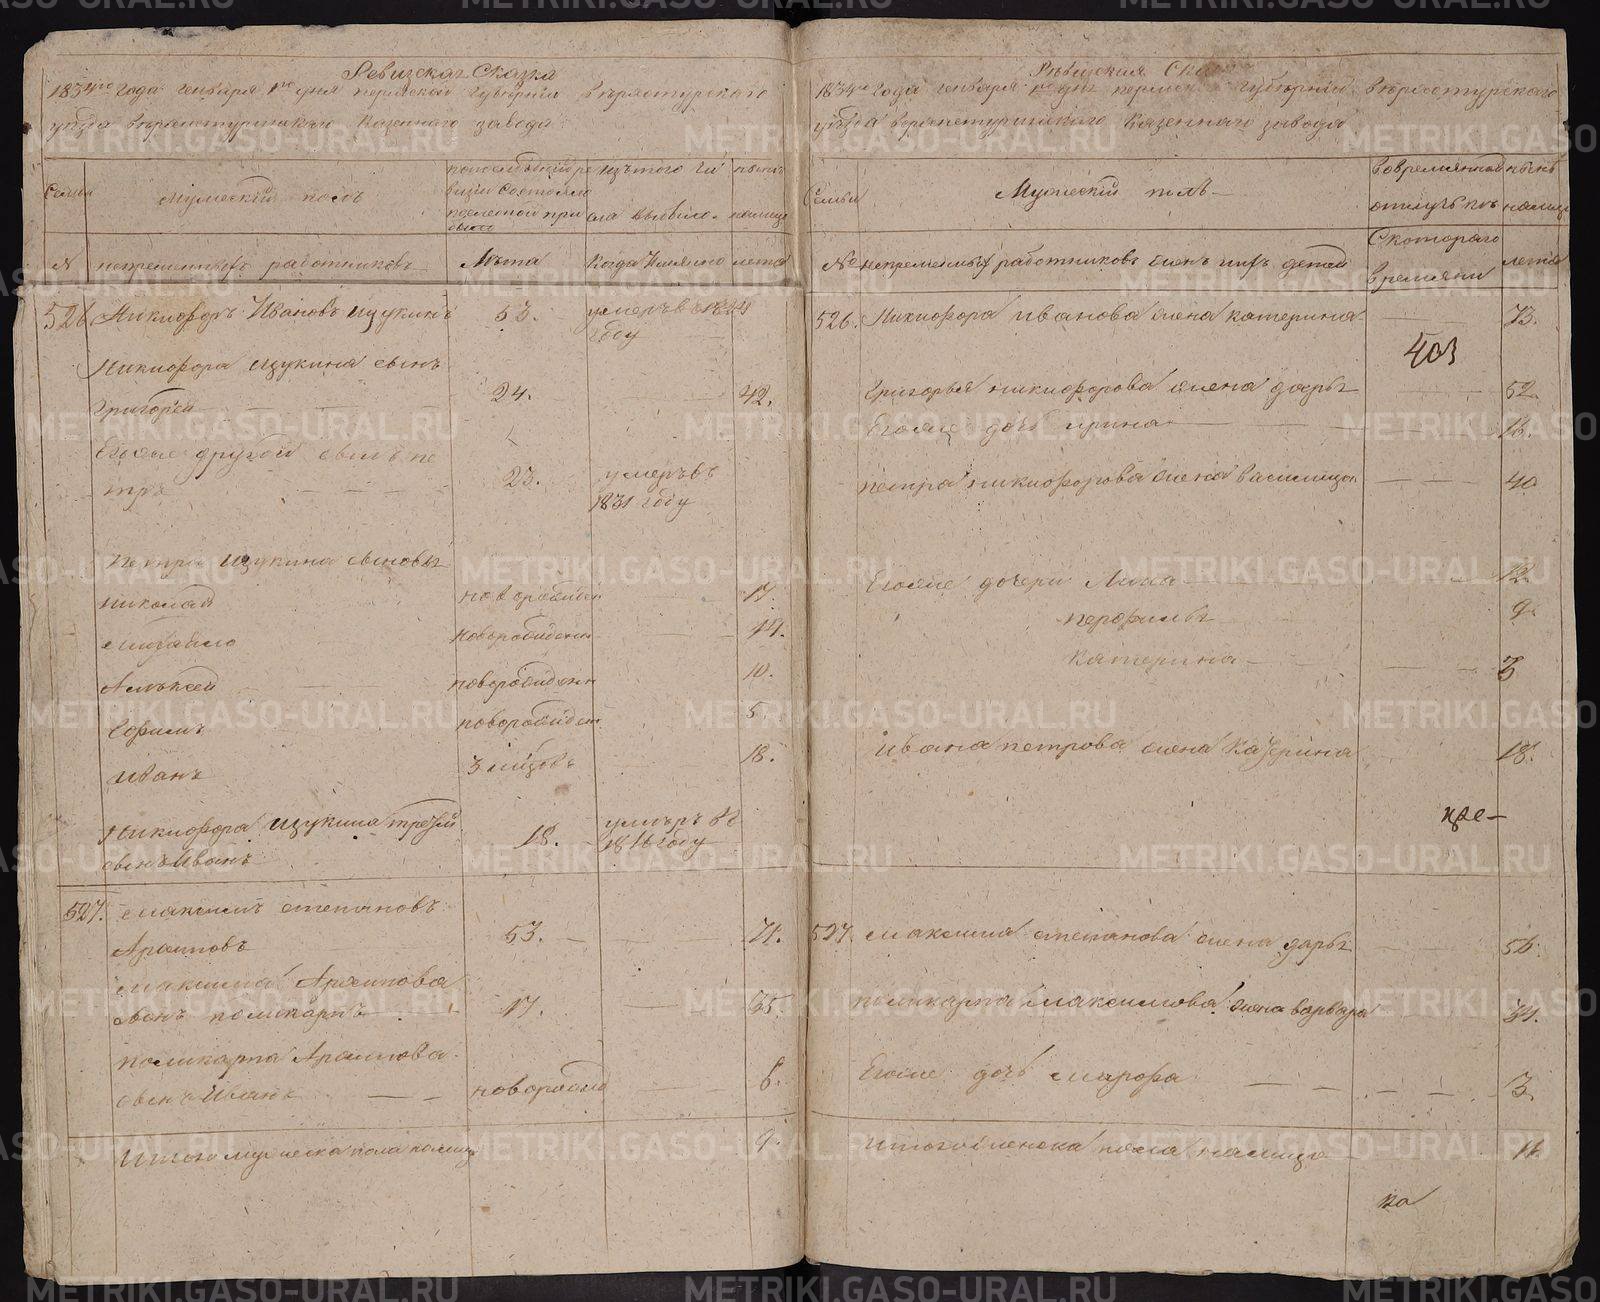 Ревизская Сказка
1834го года генваря 1го дня пермской губернiи верхотурскаго
уѣзда верхнетуринскаго казеннаго завода
Семьи
Мужескiй полъ
изъ того чи
ныне
налице
№
непременныхъ работниковъ
Лѣта
Когда именно
лета
526. Никифоръ Ивановъ Щукинъ 53. умеръ въ 1824
году
Никифора Щукина сынъ
Григорей 24. 42.
Егоже другой сынъ пе
тръ 23. умеръ въ
1831 году
Петра Щукина сыновья
Николай новорожден 17.
Михайло новорожденн 14.
Алексей новорожденн 10.
Ефимъ новорожден 5.
Иванъ 18.
Никифора Щукина третей
сынъ Иванъ 18. умеръ въ
1816 году
527. Максимъ степановъ
Араповъ 53. 71.
Максима Арапова
сынъ поликарпъ 17. 35.
поликарпа Арапова
сынъ Иванъ новорожд 6.
Итого мужеска пола налицо 9.
Ревизская Сказка
1834го года генваря 1го дня пермской губернiи верхотурскаго
уѣзда верхнетуринскаго казеннаго завода
Семьи
Мужескiй полъ
вовременной
отлучке
ныне
налице
№ непременныхъ работниковъ жены ихъ детей
Скотораго
времяни
лета
526. Никифора иванова жена катерина 73.
403
Григорья никифорова жена дарья 52.
Егоже дочь ирина 16.
петра никифорова жена василиса 40
Егоже дочери Анна 12.
перофилья 9.
катерина 3
ивана петрова жена катерина 18.
527. максима степанова жена дарья 56.
поликарпа максимова жена варвара 34.
Егоже дочь марфа 3.
Итого женска пола налицо 11.
ка
METRIKI.GASO-URAL.RU